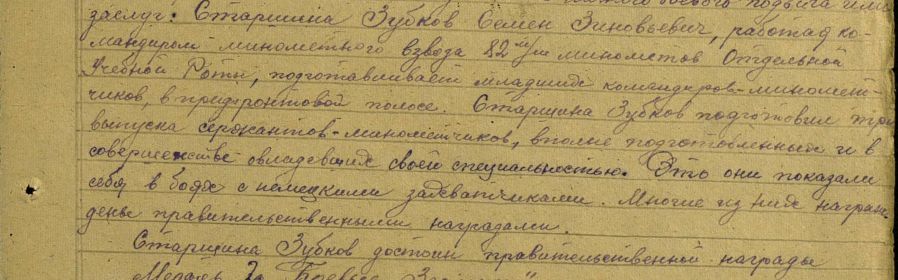 боевого подвига или
заслуг: Старшина Зубков Семен Зиновьевич, работая ко-
мандиром минометного взвода 82 м/м минометов Отдельной
Учебной Роты, подготавливает младших командиров-миномет-
чиков, в прифронтовой полосе. Старшина Зубков подготовил три
выпуска сержантов-минометчиков, вполне подготовленных и в
совершенстве овладевших своей специальностью. Это они показали
себя в боях с немецкими захватчиками. Многие из них награж-
дены правительственными наградами.
Старшина Зубков достоин правительственной награды
Медаль За Боевые